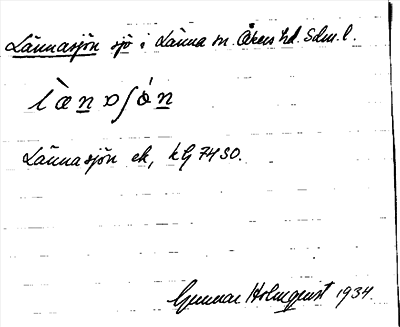 Lännasjön sjö i Länna sn. Åkers hd. Sdm. l.
l̀ænɒʃön
Lännasjön ek, kG 7430.
Gunnar Holmquist 1934.